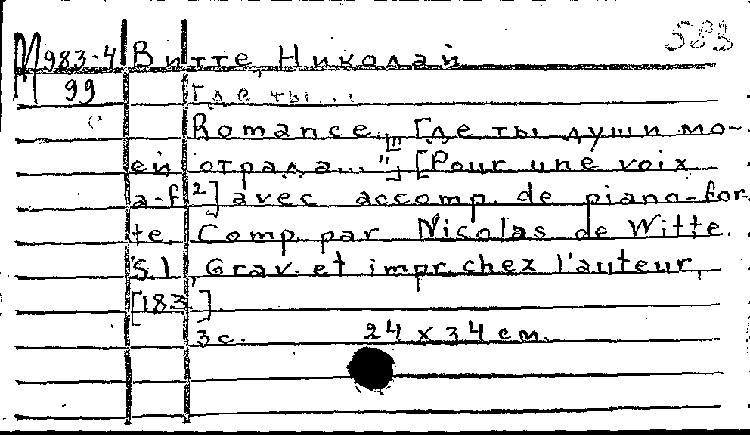 583
М 983-4 Витте, Николай
99 Где ты...
Romance. „Где ты души мо-
ей отрада..." [Pour une voix
a-f²] avec accomp. de piano-for-
te. Comp. par Nicolas de Witte.
S.l., Grav. et impr. chez l'auteur,
[183 ]
3 с. 24 x 34 см.